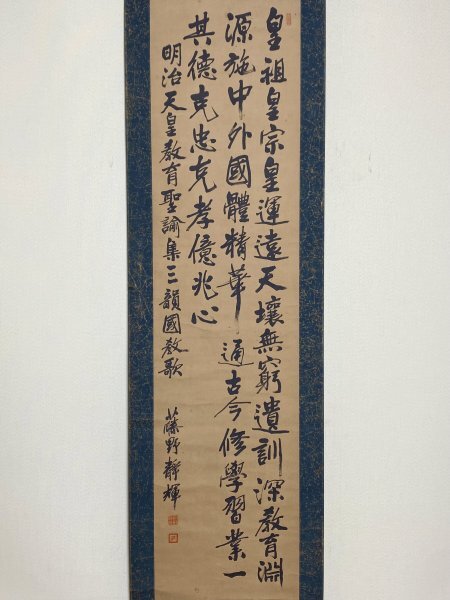 皇祖皇宗皇運遠天壤無窮遺訓深教育淵
源施中外國體精華通古今修學習業一
其德克忠克孝億兆心
明治天皇教育聖諭集三韻國教歌
藤野靜輝